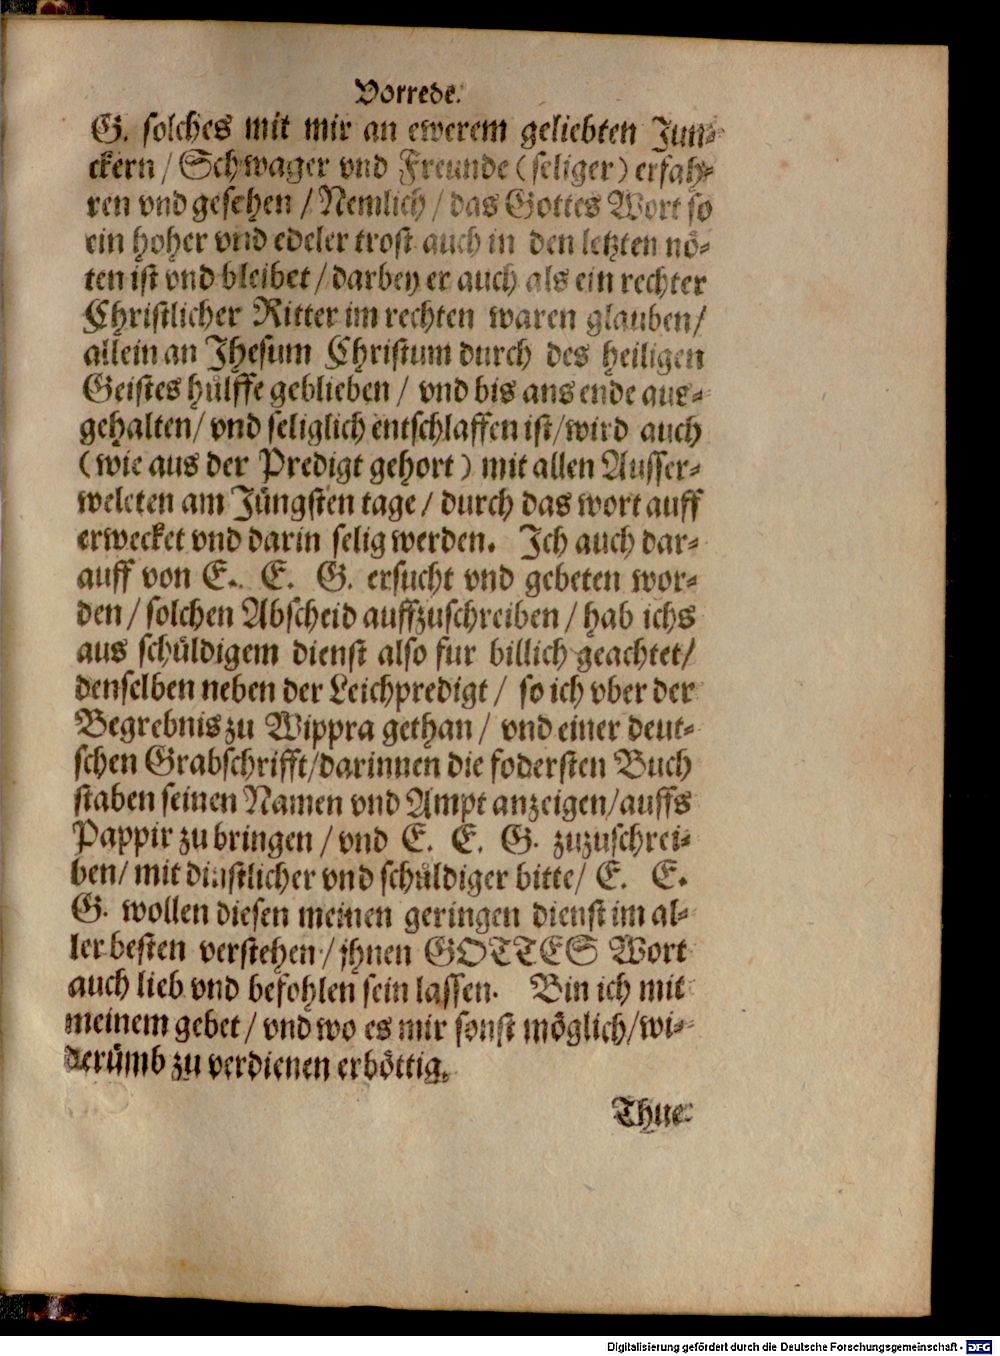 Vorrede.
G. solches mit mir an ewerem geliebten Jun-
ckern / Schwager vnd Freunde (seliger) erfah-
ren vnd gesehen / Nemlich / das Gottes Wort so
ein hoher vnd edeler trost auch in den letzten nö-
ten ist vnd bleibet / darbey er auch als ein rechter
Christlicher Ritter im rechten waren glauben /
allein an Jhesum Christum durch des heiligen
Geistes hülffe geblieben / vnd bis ans ende aus-
gehalten / vnd seliglich entschlaffen ist / wird auch
(wie aus der Predigt gehort) mit allen Ausser-
weleten am Jüngsten tage / durch das wort auff
erwecket vnd darin selig werden. Ich auch dar-
auff von E. E. G. ersucht vnd gebeten wor-
den / solchen Abscheid auffzuschreiben / hab ichs
aus schüldigem dienst also fur billich geachtet /
denselben neben der Leichpredigt / so ich vber der
Begrebnis zu Wippra gethan / vnd einer deut-
schen Grabschrifft / darinnen die fodersten Buch
staben seinen Namen vnd Ampt anzeigen / auffs
Pappir zu bringen / vnd E. E. G. zuzuschrei-
ben / mit dinstlicher vnd schüldiger bitte / E. E.
G. wollen diesen meinen geringen dienst im al-
ler besten verstehen / jhnen GOTTES Wort
auch lieb vnd befohlen sein lassen. Bin ich mit
meinem gebet / vnd wo es mir sonst möglich / wi-
derümb zu verdienen erböttig.
Thue
Digitalisierung gefördert durch die Deutsche Forschungsgemeinschaft - DFG